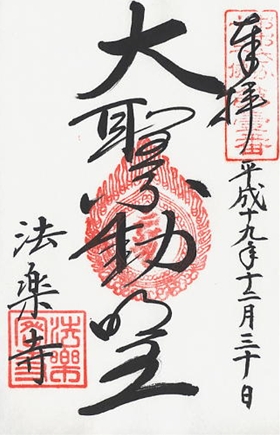 奉拝
平成十九年十二月三十日
大聖不動明王
法楽寺